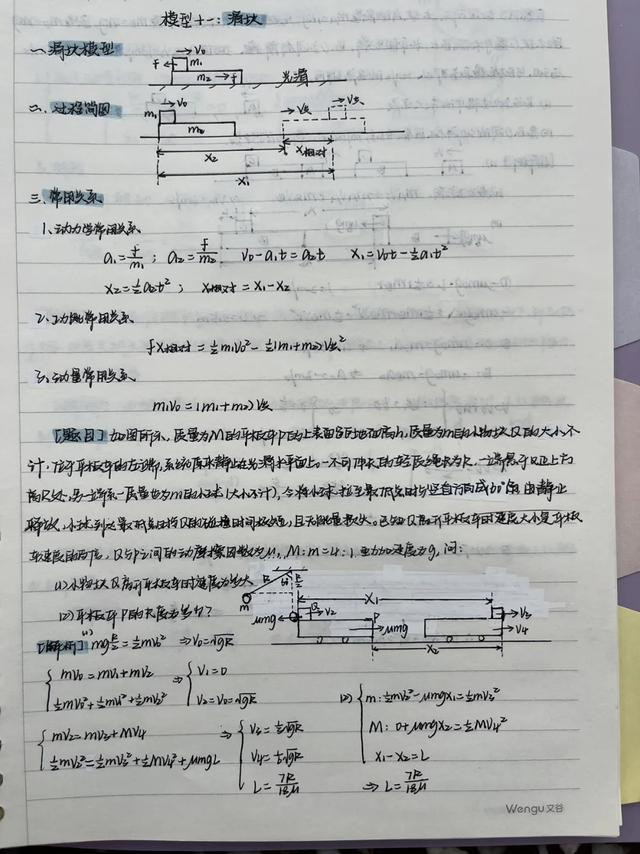 模型十一：滑块
一、滑块模型
v₀
f
m₁
m₂
f
光滑
二、过程简图
m₁
v₀
m₂
v共
v共
x₂
x相对
x₁
三、常用关系
1、动力学常用关系
a₁=f/m₁ ; a₂=f/m₂ v₀-a₁t=a₂t x₁=v₀t-½a₁t²
x₂=½a₂t² ; x相对=x₁-x₂
2、功能常用关系
fx相对=½m₁v₀²-½(m₁+m₂)v共²
3、动量常用关系
m₁v₀=(m₁+m₂)v共
[题目] 如图所示，质量为M的平板车P的上表面离地面高h，质量为m的小物块Q的大小不
计，位于平板车的左端，系统原来静止在光滑水平面上。一不可伸长的轻质细绳长为R，一端悬于Q正上方
高R处，另一端系一质量也为m的小球(大小不计)，今将小球拉至悬线与竖直方向成60°角，由静止
释放，小球到达最低点时与Q的碰撞时间极短，且无能量损失。已知Q离开平板车时速度大小是平板
车速度的两倍，Q与P之间的动摩擦因数为μ，M:m=4:1，重力加速度为g，问：
(1)小物块Q离开平板车时速度为多大
(2)平板车P的长度为多少？
R
60°
R/2
m
Q
v₂
μmg
P
μmg
x₁
x₂
v₃
v₄
[解析] (1) mgR/2=½mv₀² ⇒v₀=√gR
mv₀=mv₁+mv₂
½mv₀²=½mv₁²+½mv₂²
⇒ v₁=0
v₂=v₀=√gR
mv₂=mv₃+Mv₄
½mv₂²=½mv₃²+½Mv₄²+μmgL
⇒ v₃=⅓√gR
v₄=⅙√gR
L=7R/18μ
(2) m:½mv₂²-μmgx₁=½mv₃²
M: 0+μmgx₂=½Mv₄²
x₁-x₂=L
⇒L=7R/18μ
Wengu 文谷